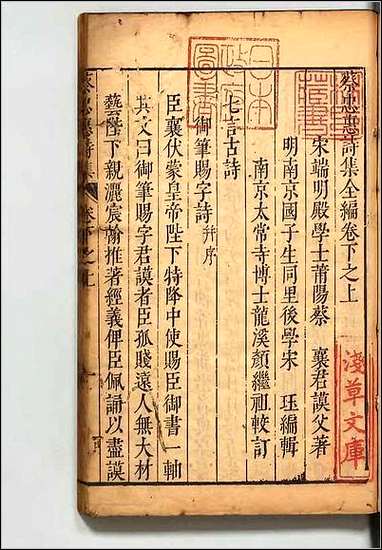 蔡忠惠詩集全編卷下之上
宋端明殿學士莆陽蔡　襄君謨父著
明南京國子生同里後學宋　珏編輯
南京太常寺博士龍溪顏繼祖較訂
七言古詩
御筆賜字詩并序
臣襄伏蒙皇帝陛下特降中使賜臣御書一軸
其文曰御筆賜字君謨者臣孤賤遠人無大材
藝陛下親灑宸翰推著經義俾臣佩誦以盡謨
蔡忠惠詩集
卷下之上
淺草文庫
日本
圖書